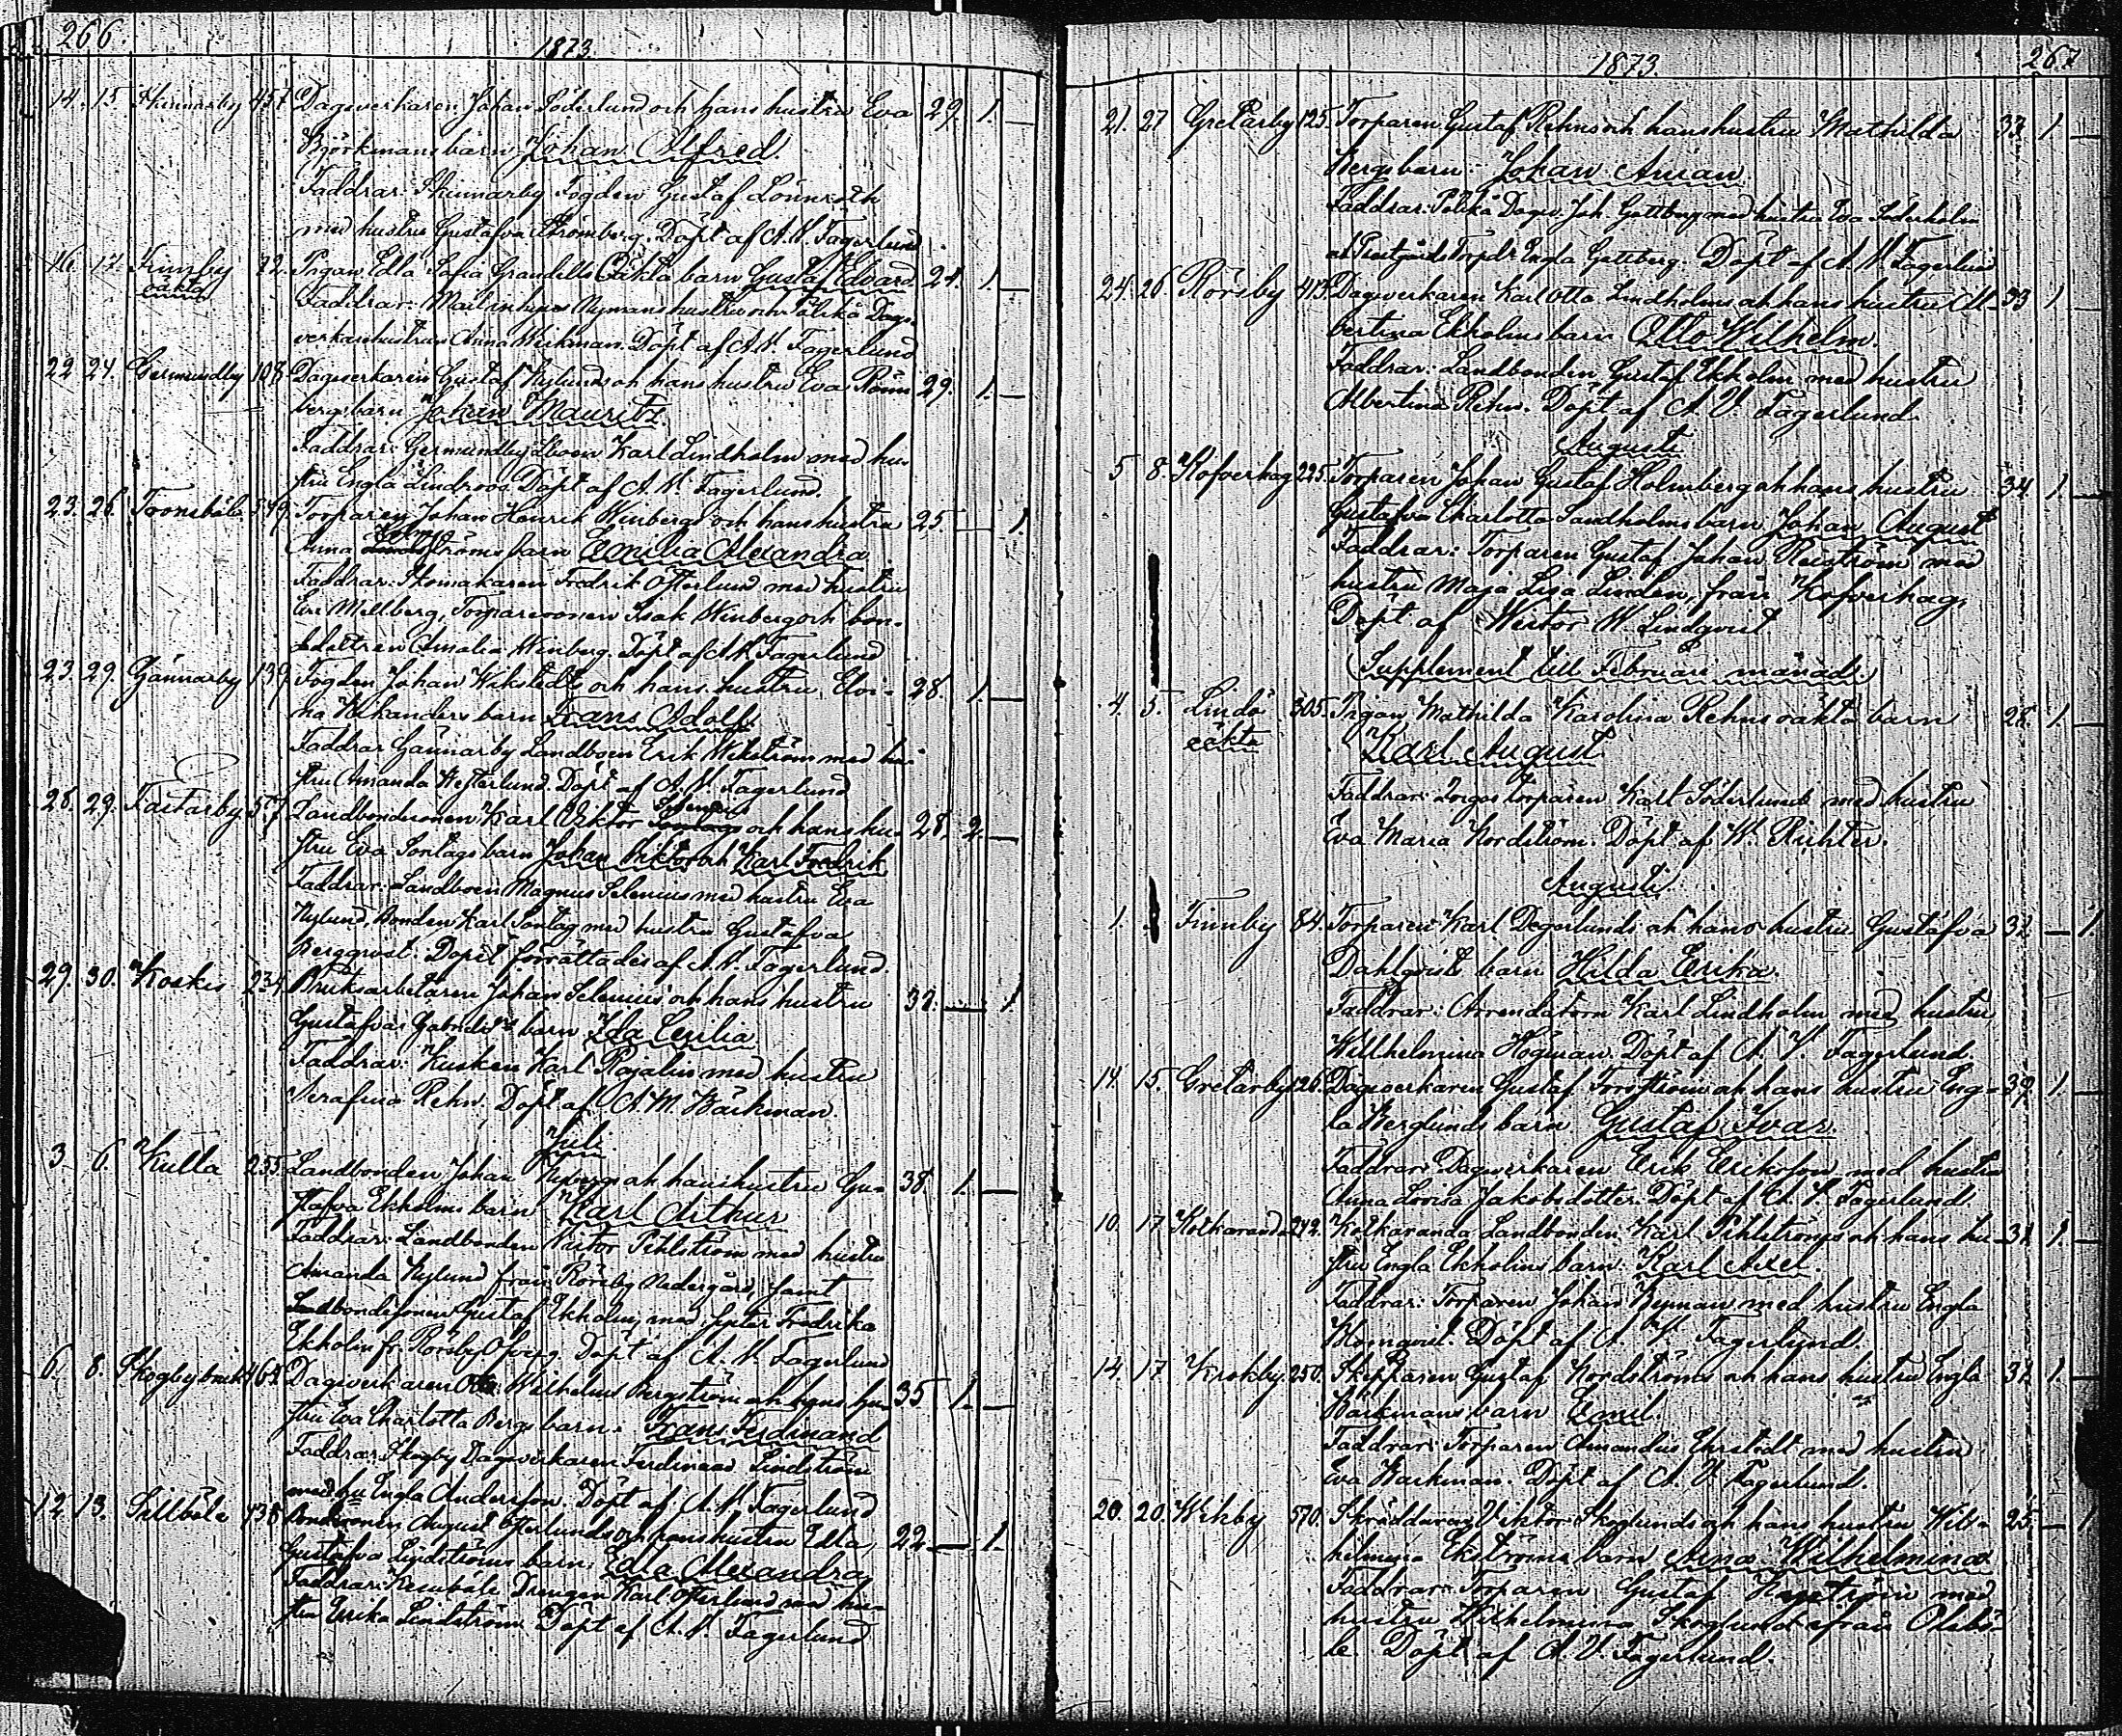 266.
1873.
14. 15. Skinnarby 457 Dagsverkaren Johan Söderlund och hans hustru Eva 29. 1. —
Björkmans barn Johan Alfred.
Faddrar: Skinnarby Fogden Gustaf Lönnroth
med hustru Gustafva Strömberg. Döpt af A. V. Fagerlund
16. 17. Finnby 72. Pigan Edla Sofia Grandells Oäkta barn Gustaf Edvard 24. 1. —
oäkta
Faddrar: Nymans hustru och Pålikä Dags-
verkarehustrun Anna Wickman. Döpt af A. V. Fagerlund
22. 24. Germundby 108. Dagsverkaren Gustaf Nylunds och hans hustru Eva Rönn- 29. 1. —
bergs barn Johan Mauritz.
Faddrar: Germundby Lboen Karl Lindholm med hu-
stru Engla Lindroos. Döpt af A. V. Fagerlund.
23. 26. Torparen Johan Henrik Winbergs och hans hustru 25. — 1.
Anna ströms barn Emilia Alexandra
Faddrar: Skomakaren Fredrik Öfterlund med hustru
Eva Millberg, Torparesonen Isak Winberg och bon-
dedottren Amalia Winberg. Döpt af A. V. Fagerlund
23. 29. Gännarby 139. Fogden Johan Wikstedts och hans hustru Elvi- 28. 1. —
na Wikanders barn Frans Adolf.
Faddrar Gännarby Landboen Erik Wikström med hu-
stru Amanda Westerlund. Döpt af A. V. Fagerlund
28. 29. Fastarby 57 Landbondesonen Karl Viktor och hans hu- 28. 2. —
stru Eva Sontags barn Johan Viktor och Karl Fredrik
Faddrar: Landboen Magnus Selenius med hustru Eva
Nylund, Bonden Karl Sontag med hustru Gustafva
Bergqvist. Dopet förrättades af A. V. Fagerlund.
29. 30. Koskis 234. Bruksarbetaren Johan Selenius och hans hustru 32. — 1.
Gustafva barn Ida Cecilia
Faddrar: Kusken Karl Rajalin med hustru
Serafina Rehn. Döpt af A. M. Bäckman.
Juli
3 6. Kulla 255. Landbonden Johan Nybergs och hans hustru Gu- 38 1. —
stafva Ekholms barn Karl Arthur
Faddrar: Landbonden Victor Pihlström med hustru
Amanda Nylund från Rörsby Nedergård, samt
Landbondesonen Gustaf Ekholm med syster Fredrika
Ekholm fr. Rörsby Öfverg. Döpt af A. V. Fagerlund
6. 8. Skogby bruk 462 Dagsverkaren Wilhelm Bergström och hans hu- 35 1. —
stru Eva Charlotta Bergs barn. Frans Ferdinand
Faddrar: Skogby Dagsverkaren Ferdinand Lindström
med hu Engla Andersson. Döpt af A. V. Fagerlund
12 13. Sillböle 438 Bondesonen August Öfterlunds och hans hustru Edla 22 — 1.
Gustafva Lindströms barn: Edla Alexandra
Faddrar: Drengen Karl Öfterlund med hu-
stru Erika Lindström. Döpt af A. V. Fagerlund
1873.
267
21. 27 Gretarby 125. Torparen Gustaf Rehns och hans hustru Mathilda 33. 1. —
Bergs barn: Johan Arvian
Faddrar: Pålikä Dagsv. Joh. Gottberg med hustru Eva Söderholm
Engla Gottberg. Döpt af A. V. Fagerlund
24. 26 Rörsby 413. Dagsverkaren Karl Otto Lindholms och hans hustru Al- 33 1.
bertina Ekholms barn Otto Wilhelm.
Faddrar: Landbonden Gustaf Ekholm med hustru
Albertina Rehn. Döpt af A. V. Fagerlund.
Augusti
5 8. Kofverhag 225. Torparen Johan Gustaf Holmberg och hans hustru 34. 1. —
Gustafva Charlotta Sandholms barn Johan August
Faddrar: Torparen Gustaf Johan Reiström med
hustru Maja Lisa Linden, från Kofverhag,
Döpt af Victor W. Lindqvist
(Supplement till Februari månad.)
4. 5. Lindö 305. Pigan Mathilda Karolina Rehns oäkta barn 28. 1. —
oäkta Karl August
Faddrar: torparen Karl Söderlund med hustru
Eva Maria Nordström. Döpt af W. Richter.
Augusti.
1. Finnby 84. Torparen Karl Degerlunds och hans hustru Gustafva 32 — 1.
Dahlqvists barn Hilda Erika.
Faddrar: Arrendatorn Karl Lindholm med hustru
Willhelmina Högman. Döpt af A. V. Fagerlund.
14. 15. Gretarby 126. Dagsverkaren Gustaf Forsströms och hans hustru Eng- 39. 1. —
la Berglunds barn Gustaf Ivar.
Faddrar: Dagsverkaren Erik Eriksson med hustru
Anna Lovisa Jakobsdotter. Döpt af A. V. Fagerlund.
10. 17 Kolkaranda 242. Kolkaranda Landbonden Karl Pihlströms och hans hu- 31 1. —
stru Engla Ekholms barn: Karl Axel.
Faddrar: Torparen Johan Nyman med hustru Engla
Blomqvist. Döpt af A. V. Fagerlund.
14. 17 Krokby. 250. Skepparen Gustaf Nordströms och hans hustru Engla 31. 1. —
Bäckmans barn Emil.
Faddrar: Torparen Amandus Ehrstedt med hustru
Eva Backman. Döpt af A. V. Fagerlund.
20. 20. Wikby 570. Skräddaren Viktor Skoglunds och hans hustru Wil- 25. — 1
helmina Ekströms barn Anna Wilhelmina
Faddrar: Torparen Gustaf med
hustru Wilhelmina Skoglund från Olsbö-
le. Döpt af A. V. Fagerlund.